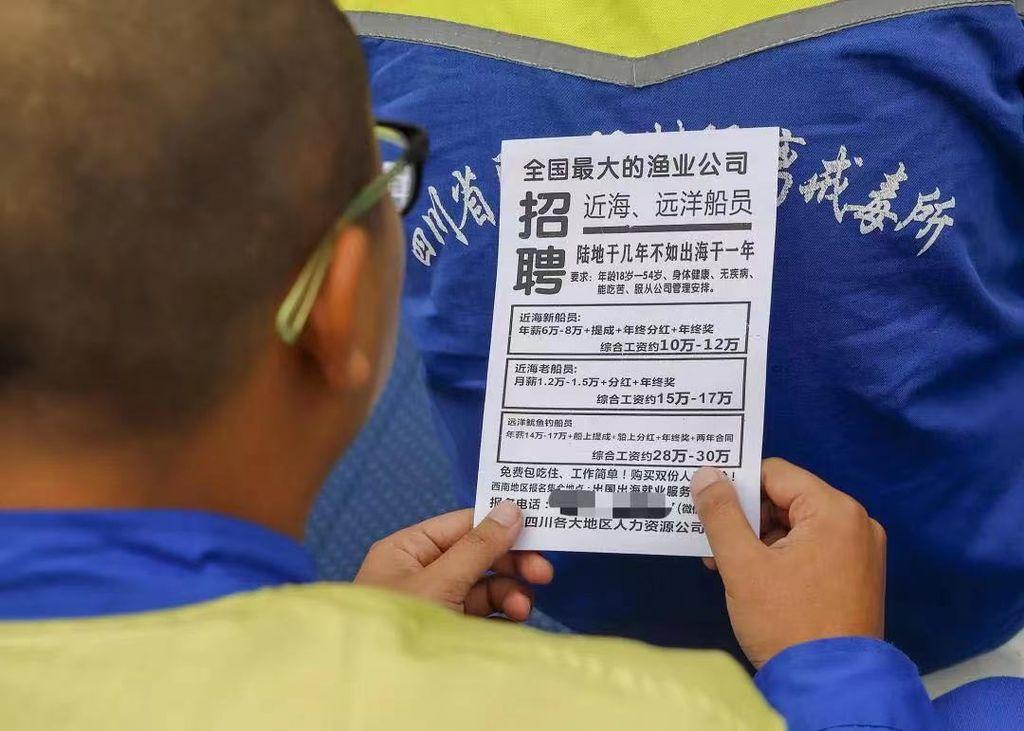 全国最大的渔业公司
招聘
近海、远洋船员
陆地干几年不如出海干一年
要求：年龄18岁—54岁、身体健康、无疾病、
能吃苦、服从公司管理安排。
近海新船员:
年薪6万-8万+提成+年终分红+年终奖
综合工资约10万-12万
近海老船员:
月薪1.2万-1.5万+分红+年终奖
综合工资约15万-17万
远洋鱿鱼钓船员
年薪14万-17万+船上提成+船上分红+年终奖+两年合同
综合工资约28万-30万
免费包吃住、工作简单！购买双份人
西南地区报名集合地点：出国出海就业服务
报名电话：
(微信
四川各大地区人力资源公司
四川省
离戒毒所